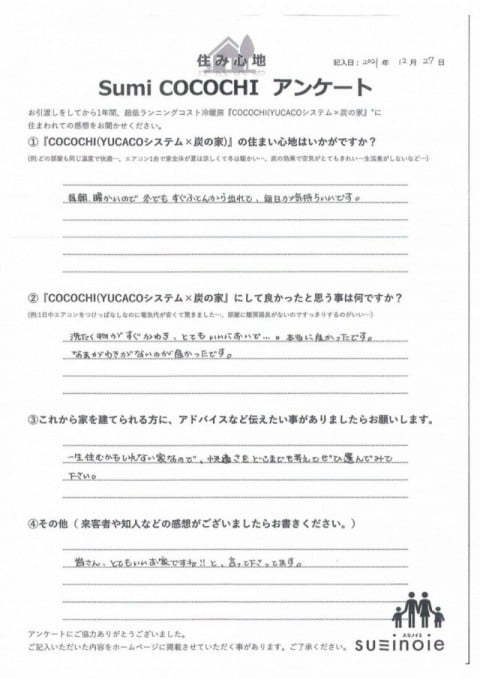 住み心地
記入日：2021年 12月 27日
Sumi COCOCHI アンケート
お引渡しをしてから1年間、超低ランニングコスト冷暖房『COCOCHI(YUCACOシステム×炭の家』"に
住まわれての感想をお聞かせください。
①『COCOCHI(YUCACOシステム×炭の家)』の住まい心地はいかがですか？
(例:どの部屋も同じ温度で快適…、エアコン1台で家全体が夏は涼しくて冬は暖かい…、炭の効果で空気がとてもきれい…生活臭がしないなど…)
毎朝、暖かいので 冬でも すぐふとんから出れて、毎日が気持ちいいです。
②『COCOCHI(YUCACOシステム×炭の家』にして良かったと思う事は何ですか？
(例:1日中エアコンをつけっぱなしなのに電気代が安くて驚きました…、部屋に暖房器具がないのですっきりするのがいい…)
洗たく物がすぐかわき、とてもいいにおいで…。本当に良かったです。
なまがわきがないのが良かったです。
③これから家を建てられる方に、アドバイスなど伝えたい事がありましたらお願いします。
一生住むかもしれない家なので、快適さをどこまでも考えてぜひ選んでみて
下さい。
④その他（ 来客者や知人などの感想がございましたらお書きください。）
皆さん、とてもいいお家ですね!! と、言って下さってます。
アンケートにご協力ありがとうございました。
ご記入いただいた内容をホームページに掲載させていただく事があります。ご了承ください。
スミノイエ
suminoie